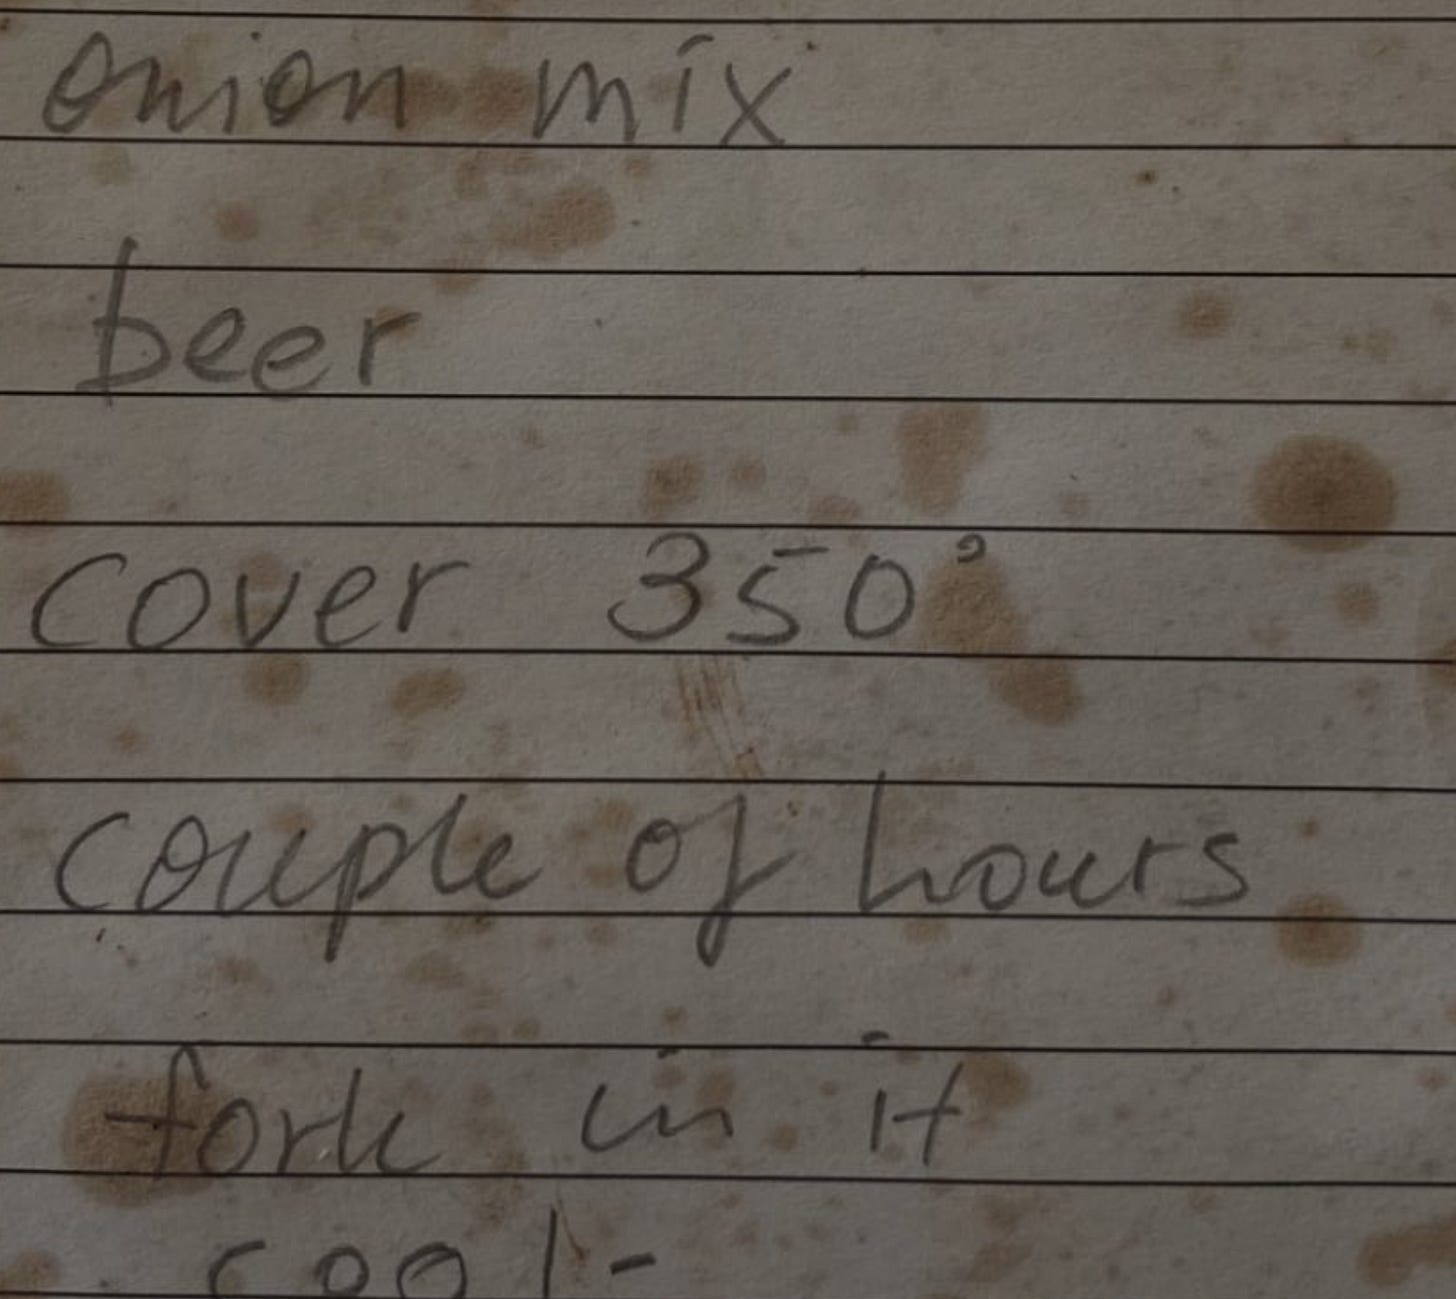 onion mix
beer
cover 350°
couple of hours
fork in it
cool-